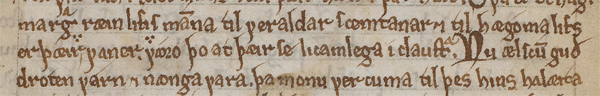 margr ræin lifis mana til veraldar scemtanar ⁊ til hægoma lifs
er þæir vaner. væro þo at þæir se licamlega i claustr. Nu ælscum guð
droten varn ⁊ nænga vara. þa monu ver cuma til þes hins halærta